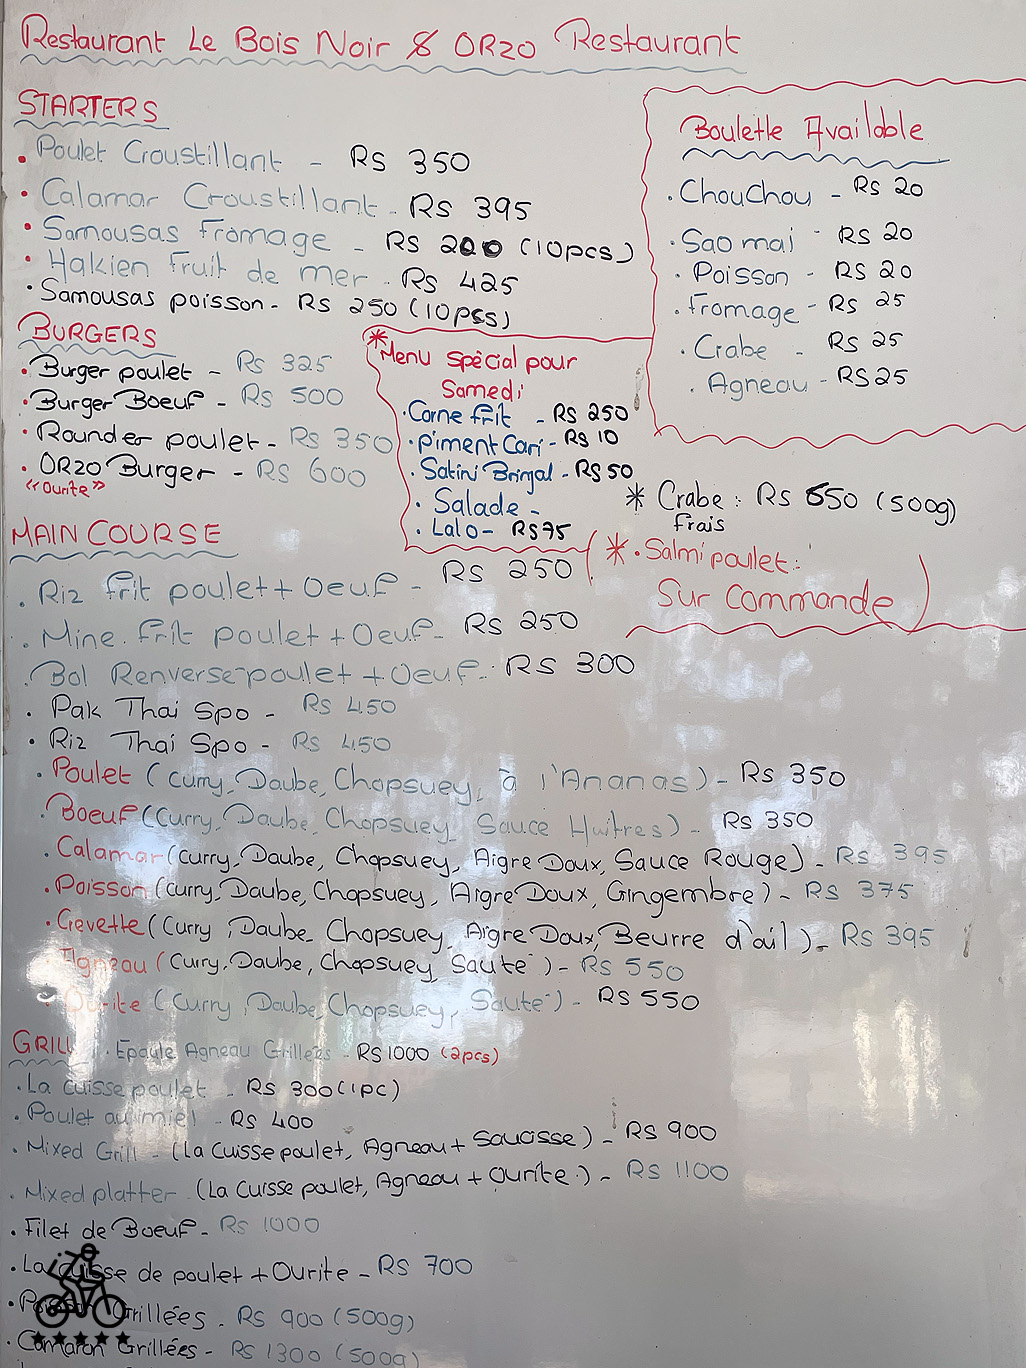 Restaurant Le Bois Noir & ORZO Restaurant
STARTERS
• Poulet Croustillant - RS 350
• Calamar Croustillant - RS 395
• Samousas Fromage - RS 200 (10pcs)
• Hakien fruit de mer - RS 425
• Samousas poisson - RS 250 (10pcs)
Boulette Available
• ChouChou - RS 20
• Sao mai - RS 20
• Poisson - RS 20
• Fromage - RS 25
• Crabe - RS 25
• Agneau - RS 25
BURGERS
• Burger poulet - RS 325
• Burger Boeuf - RS 500
• Rounder poulet - RS 350
• ORZO Burger - RS 600
"Ourite"
* Menu Spècial pour
Samedi
• Corne frit - RS 250
• Piment Cari - RS 10
• Satini Brinjal - RS 50
• Salade -
• Lalo - RS 75
* Crabe : RS 650 (500g)
frais
* • Salmi poulet :
Sur Commande
MAIN COURSE
• Riz frit poulet + Oeuf - RS 250
• Mine frit poulet + Oeuf - RS 250
• Bol Renversé poulet + Oeuf - RS 300
• Pak Thai Spo - RS 450
• Riz Thai Spo - RS 450
• Poulet (Curry, Daube, Chopsuey, à l'Ananas) - RS 350
• Boeuf (Curry, Daube, Chopsuey, Sauce Huitres) - RS 350
• Calamar (Curry, Daube, Chopsuey, Aigre Doux, Sauce Rouge) - RS 395
• Poisson (Curry, Daube, Chopsuey, Aigre Doux, Gingembre) - RS 375
• Crevette (Curry, Daube, Chopsuey, Aigre Doux, Beurre d'ail) - RS 395
• Agneau (Curry, Daube, Chopsuey, Sauté) - RS 550
• Ourite (Curry, Daube, Chopsuey, Sauté) - RS 550
GRILL • Epaule Agneau Grillées - RS 1000 (2pcs)
• La Cuisse poulet - RS 300 (1PC)
• Poulet au miel - RS 400
• Mixed Grill - (La Cuisse poulet, Agneau + Saucisse) - RS 900
• Mixed platter (La Cuisse poulet, Agneau + Ourite) - RS 1100
• Filet de Boeuf - RS 1000
• La Cuisse de poulet + Ourite - RS 700
• Poisson Grillées - RS 900 (500g)
• Camaron Grillées - RS 1300 (500g)